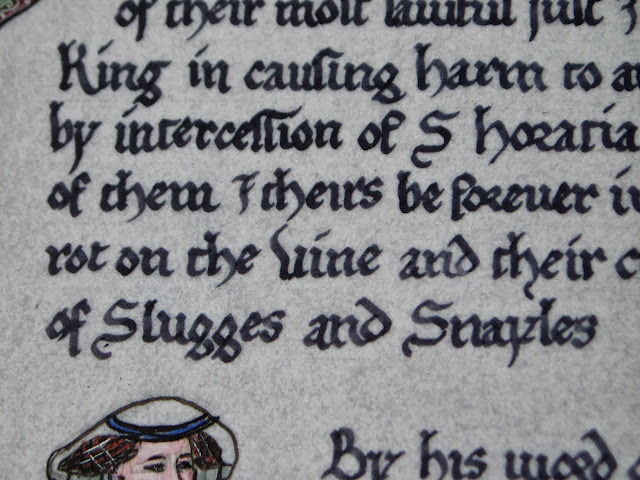 of their moſt lawful juſt ⁊
King in cauſing harm to
by interceſſion of S horatia
of them ⁊ theirs be forever
rot on the vine and their
of Slugges and Snayles
By his word